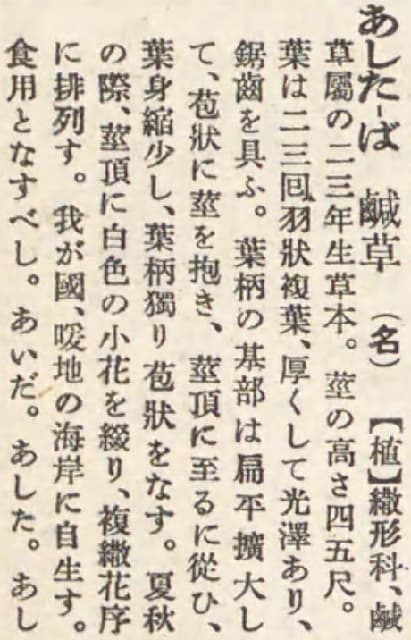 あした-ば 鹹草 (名) 【植】繖形科、鹹
草屬の二三年生草本。莖の高さ四五尺。
葉は二三囘羽狀複葉、厚くして光澤あり、
鋸齒を具ふ。葉柄の基部は扁平擴大し
て、苞狀に莖を抱き、莖頂に至るに從ひ、
葉身縮少し、葉柄獨り苞狀をなす。夏秋
の際、莖頂に白色の小花を綴り、複繖花序
に排列す。我が國、暖地の海岸に自生す。
食用となすべし。あいだ。あした。あし